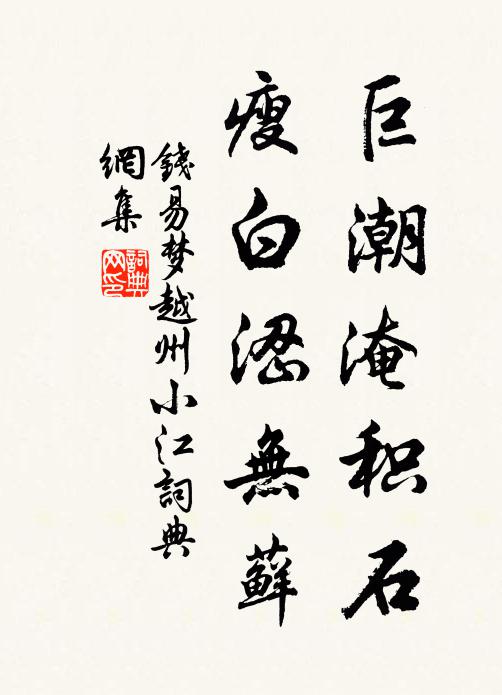 巨潮淹积石
瘦白涩無蘚
錢易梦越州小江詞典
網集
詞典网印